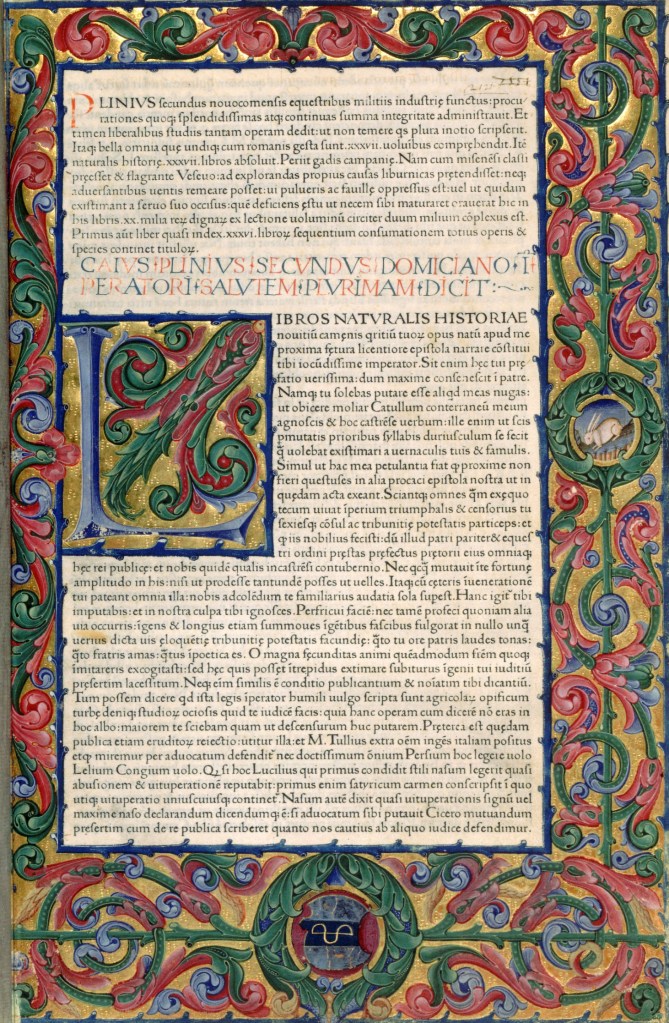 PLINIVS secundus nouocomensis equestribus militiis industrię functus: procu-
rationes quoqꝫ splendidissimas atqꝫ continuas summa integritate administrauit. Et
tamen liberalibus studiis tantam operam dedit: ut non temere qs plura inotio scripserit.
Itaqꝫ bella omnia quę undiqꝫ cum romanis gesta sunt .xxxvii. uoluibus comprehendit. Itē
naturalis historię .xxxvii. libros absoluit. Periit gadis campanię. Nam cum misenēsi classi
pręesset & flagrante Vesuuo: ad explorandas propius causas liburnicas prętendisset: neqꝫ
aduersantibus uentis remeare posset: ui pulueris ac fauillę oppressus est: uel ut quidam
existimant a seruo suo occisus: quē deficiens ęstu ut necem sibi maturaret orauerat hic in
his libris .xx. milia reꝝ dignaꝝ ex lectione uoluminū circiter duum milium cōplexus est.
Primus aūt liber quasi index .xxxvi. libroꝝ sequentium consumationem totius operis &
species continet tituloꝝ.
CAIVS PLINIVS SECVNDVS DOMICIANO I
PERATORI SALVTEM PLVRIMAM DICIT
LIBROS NATVRALIS HISTORIAE
nouitiū camęnis qritiū tuoꝝ opus natū apud me
proxima fętura licentiore epistola narrare cōstitui
tibi iocūdissime imperator. Sit enim hęc tui prę-
fatio uerissima: dum maxime consenescit ī patre.
Namqꝫ tu solebas putare esse aliqd meas nugas:
ut obicere moliar Catullum conterraneū meum
agnoscis & hoc castrēse uerbum: ille enim ut scis
pmutatis prioribus syllabis duriusculum se fecit
ꝗ uolebat existimari a uernaculis tuis & famulis.
Simul ut hac mea petulantia fiat ꝙ proxime non
fieri questus es in alia procaci epistola nostra ut in
quędam acta exeant. Sciantqꝫ omnes ꝗm exęquo
tecum uiuat īperium triumphalis & censorius tu
sexiesqꝫ cōsul ac tribunitię potestatis particeps: et
ꝙ iis nobilius fecisti: dū illud patri pariter & eques
tri ordini pręstas pręfectus prętorii eius omniaqꝫ
hęc rei publicę: et nobis quidē qualis in castrēsi contubernio. Nec qcꝗ mutauit īte fortunę
amplitudo in his: nisi ut prodesse tantundē posses ut uelles. Itaqꝫ cū ceteris ī uenerationē
tui pateant omnia illa: nobis ad colēdum te familiarius audatia sola supest. Hanc igit̄ tibi
imputabis: et in nostra culpa tibi ignosces. Perfricui facię: nec tamē profeci quoniam alia
uia occurris: īgens & longius etiam summoues īgētibus fascibus fulgorat in nullo unꝗ
uerius dicta uis eloquētię tribunitię potestatis facundię: ꝗ̄to tu ore patris laudes tonas:
ꝗ̄to fratris amas: ꝗ̄tus ī poetica es. O magna fęcunditas animi quēadmodum fīem quoqꝫ
imitareris excogitasti: sed hęc quis posset ītrepidus extimare subiturus īgenii tui iuditiū
pręsertim lacessitum. Neqꝫ eīm similis ē conditio publicantium & noīatim tibi dicantiū.
Tum possem dicere qd ista legis īperator humili uulgo scripta sunt agricolaꝝ opificum
turbę deniqꝫ studioꝝ ociosis quid te iudicē facis: quia hanc operam cum dicerē nō eras in
hoc albo: maiorem te sciebam quam ut descensurum huc putarem. Pręterea est quędam
publica etiam eruditoꝝ reiectio: utitur illa: et M. Tullius extra oēm ingēs italiam positus
etqꝫ miremur per aduocatum defendit̄ nec doctissimum ōnium Persium hoc legere uolo
Lelium Congium uolo. Qꝫ si hoc Lucilius qui primus condidit stili nasum legerit quasi
abusionem & uituperationē reputabit: primus enim satyricum carmen conscripsit ī quo
utiqꝫ uituperatio uniuscuiusqꝫ continet̄. Nasum autē dixit quasi uituperationis signū uel
maxime naso declarandum dicendumqꝫ ē: si aduocatum sibi putauit Cicero mutuandum
pręsertim cum de re publica scriberet quanto nos cautius ab aliquo iudice defendimur.